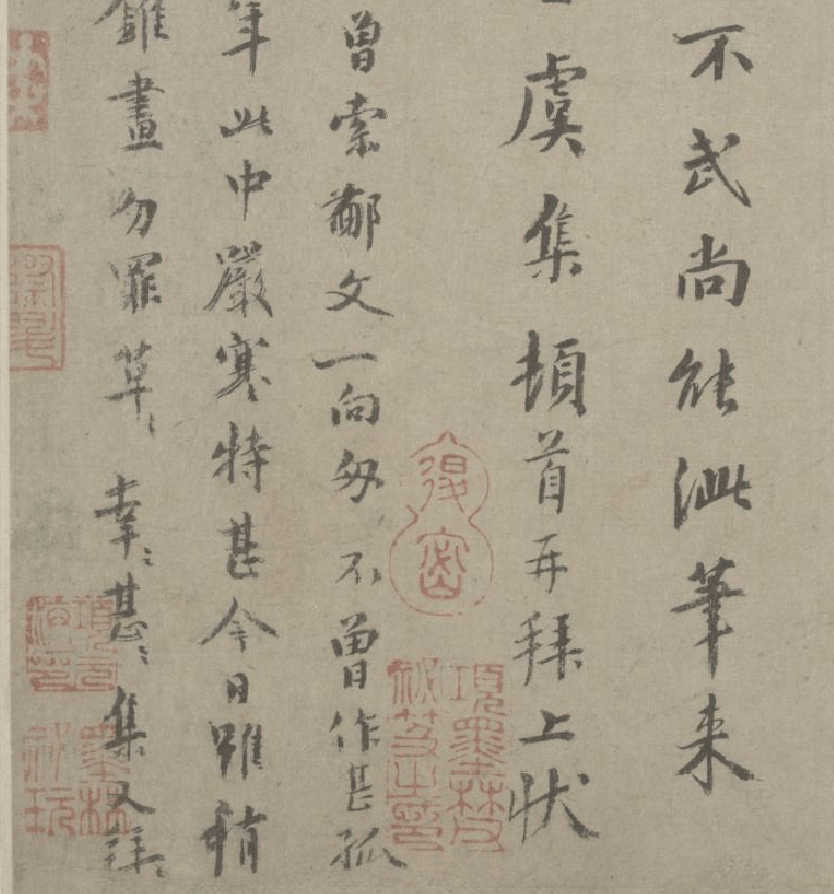 不武尚能泚筆来
虞集頓首再拜上狀
曾索鄙文一向匆不曾作甚孤
年此中嚴寒特甚今日雖稍
錐畫勿罪草〻幸〻甚〻集又拜〻
復
項墨林父
祕笈之印
項元
墨林
祕玩